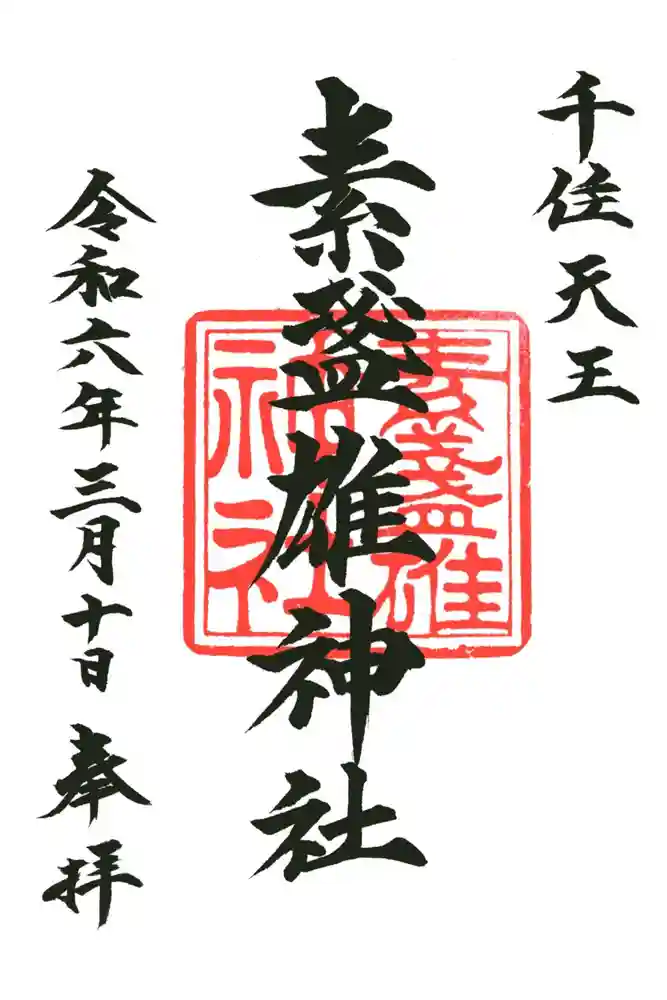 千住天王
素盞雄神社
素盞雄
神社
令和六年三月十日 奉拝